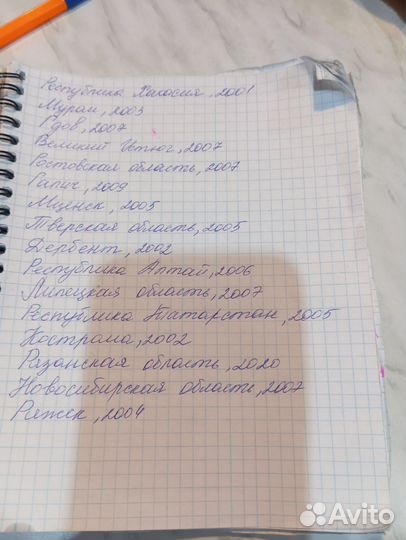 Республика Хакасия, 2001
Муром, 2003
Гдов, 2007
Великий Устюг, 2007
Ростовская область, 2007
Галич, 2009
Мценск, 2005
Тверская область, 2005
Дербент, 2002
Республика Алтай, 2006
Липецкая область, 2007
Республика Татарстан, 2005
Кострома, 2002
Рязанская область, 2020
Новосибирская область, 2007
Ряжск, 2004
Avito